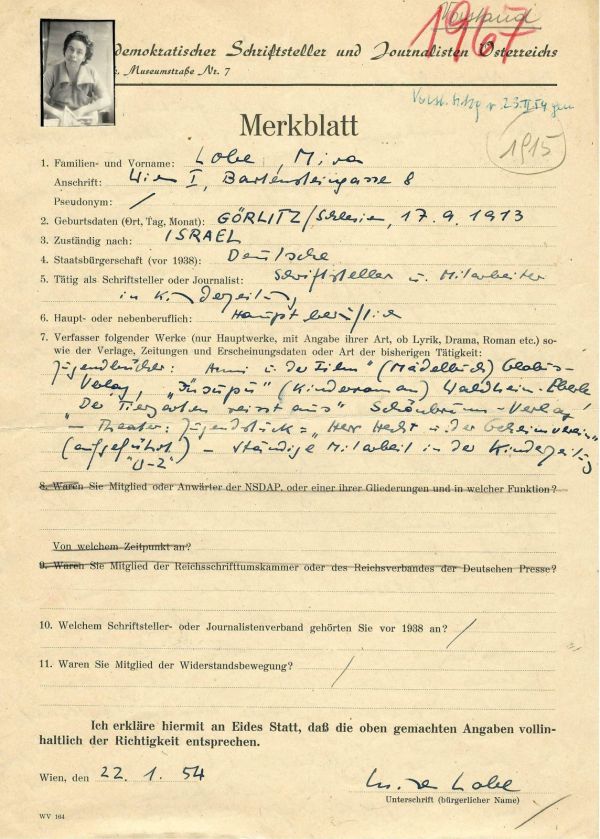 Vorstand
1967
demokratischer Schriftsteller und Journalisten Österreichs
Museumstraße Nr. 7
23. II 54
1915
Merkblatt
1. Familien- und Vorname: Lobe, Mira
Anschrift: Wien I, Bartensteingasse 8
Pseudonym: /
2. Geburtsdaten (Ort, Tag, Monat): GÖRLITZ/Schlesien, 17.9.1913
3. Zuständig nach: ISRAEL
4. Staatsbürgerschaft (vor 1938): Deutsche
5. Tätig als Schriftsteller oder Journalist: Schriftsteller u. Mitarbeiter
in Kinderzeitung
6. Haupt- oder nebenberuflich: Hauptberuflich
7. Verfasser folgender Werke (nur Hauptwerke, mit Angabe ihrer Art, ob Lyrik, Drama, Roman etc.) so-
wie der Verlage, Zeitungen und Erscheinungsdaten oder Art der bisherigen Tätigkeit:
Jugendbücher: Anni u. der Film" (Mädelbuch) Globus-
Verlag, „Insupu" (Kinderroman) Waldheim-Eberle
„Der Tiergarten reisst aus" Schönbrunn-Verlag
– Theater: Jugendstück = „Herr Hecht u. der Geheimverein"
(aufgeführt) – ständige Mitarbeit in der Kinderzeitung
"U-Z"
8. Waren Sie Mitglied oder Anwärter der NSDAP, oder einer ihrer Gliederungen und in welcher Funktion?
Von welchem Zeitpunkt an?
9. Waren Sie Mitglied der Reichsschrifttumskammer oder des Reichsverbandes der Deutschen Presse?
10. Welchem Schriftsteller- oder Journalistenverband gehörten Sie vor 1938 an? /
11. Waren Sie Mitglied der Widerstandsbewegung? /
Ich erkläre hiermit an Eides Statt, daß die oben gemachten Angaben vollin-
haltlich der Richtigkeit entsprechen.
Wien, den 22. 1. 54
Mira Lobe
Unterschrift (bürgerlicher Name)
WV 164